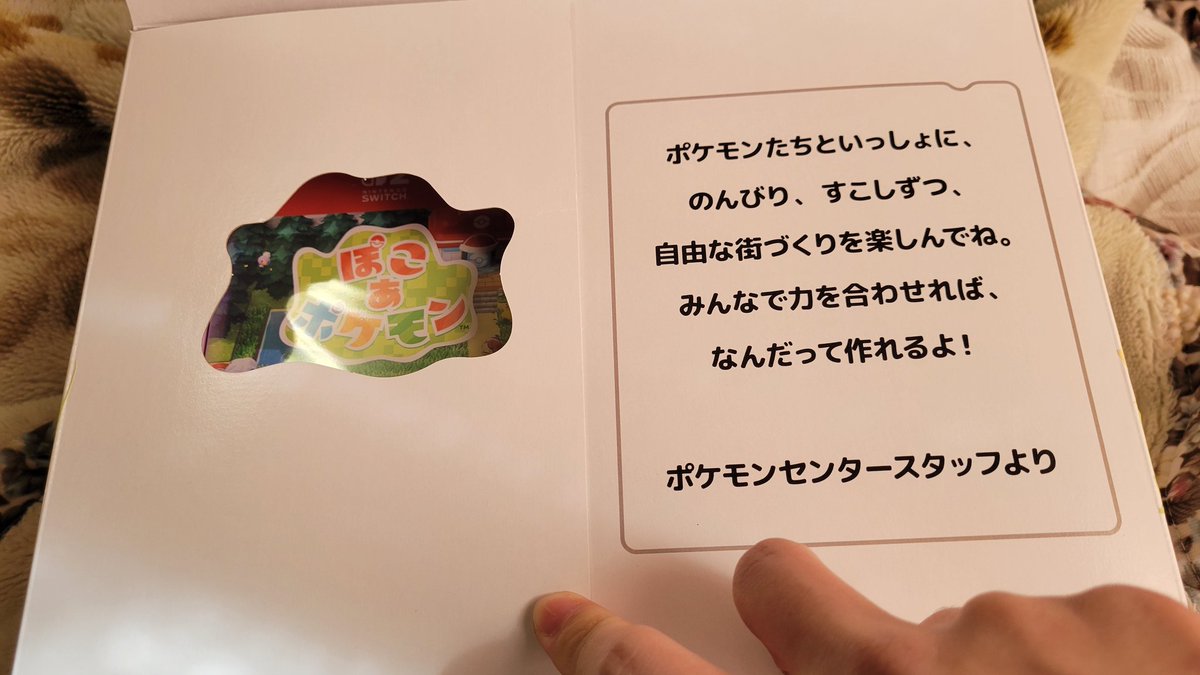 NINTENDO
SWITCH
ぽこ
あ
ポケモン
TM
ポケモンたちといっしょに、
のんびり、すこしずつ、
自由な街づくりを楽しんでね。
みんなで力を合わせれば、
なんだって作れるよ!
ポケモンセンタースタッフより